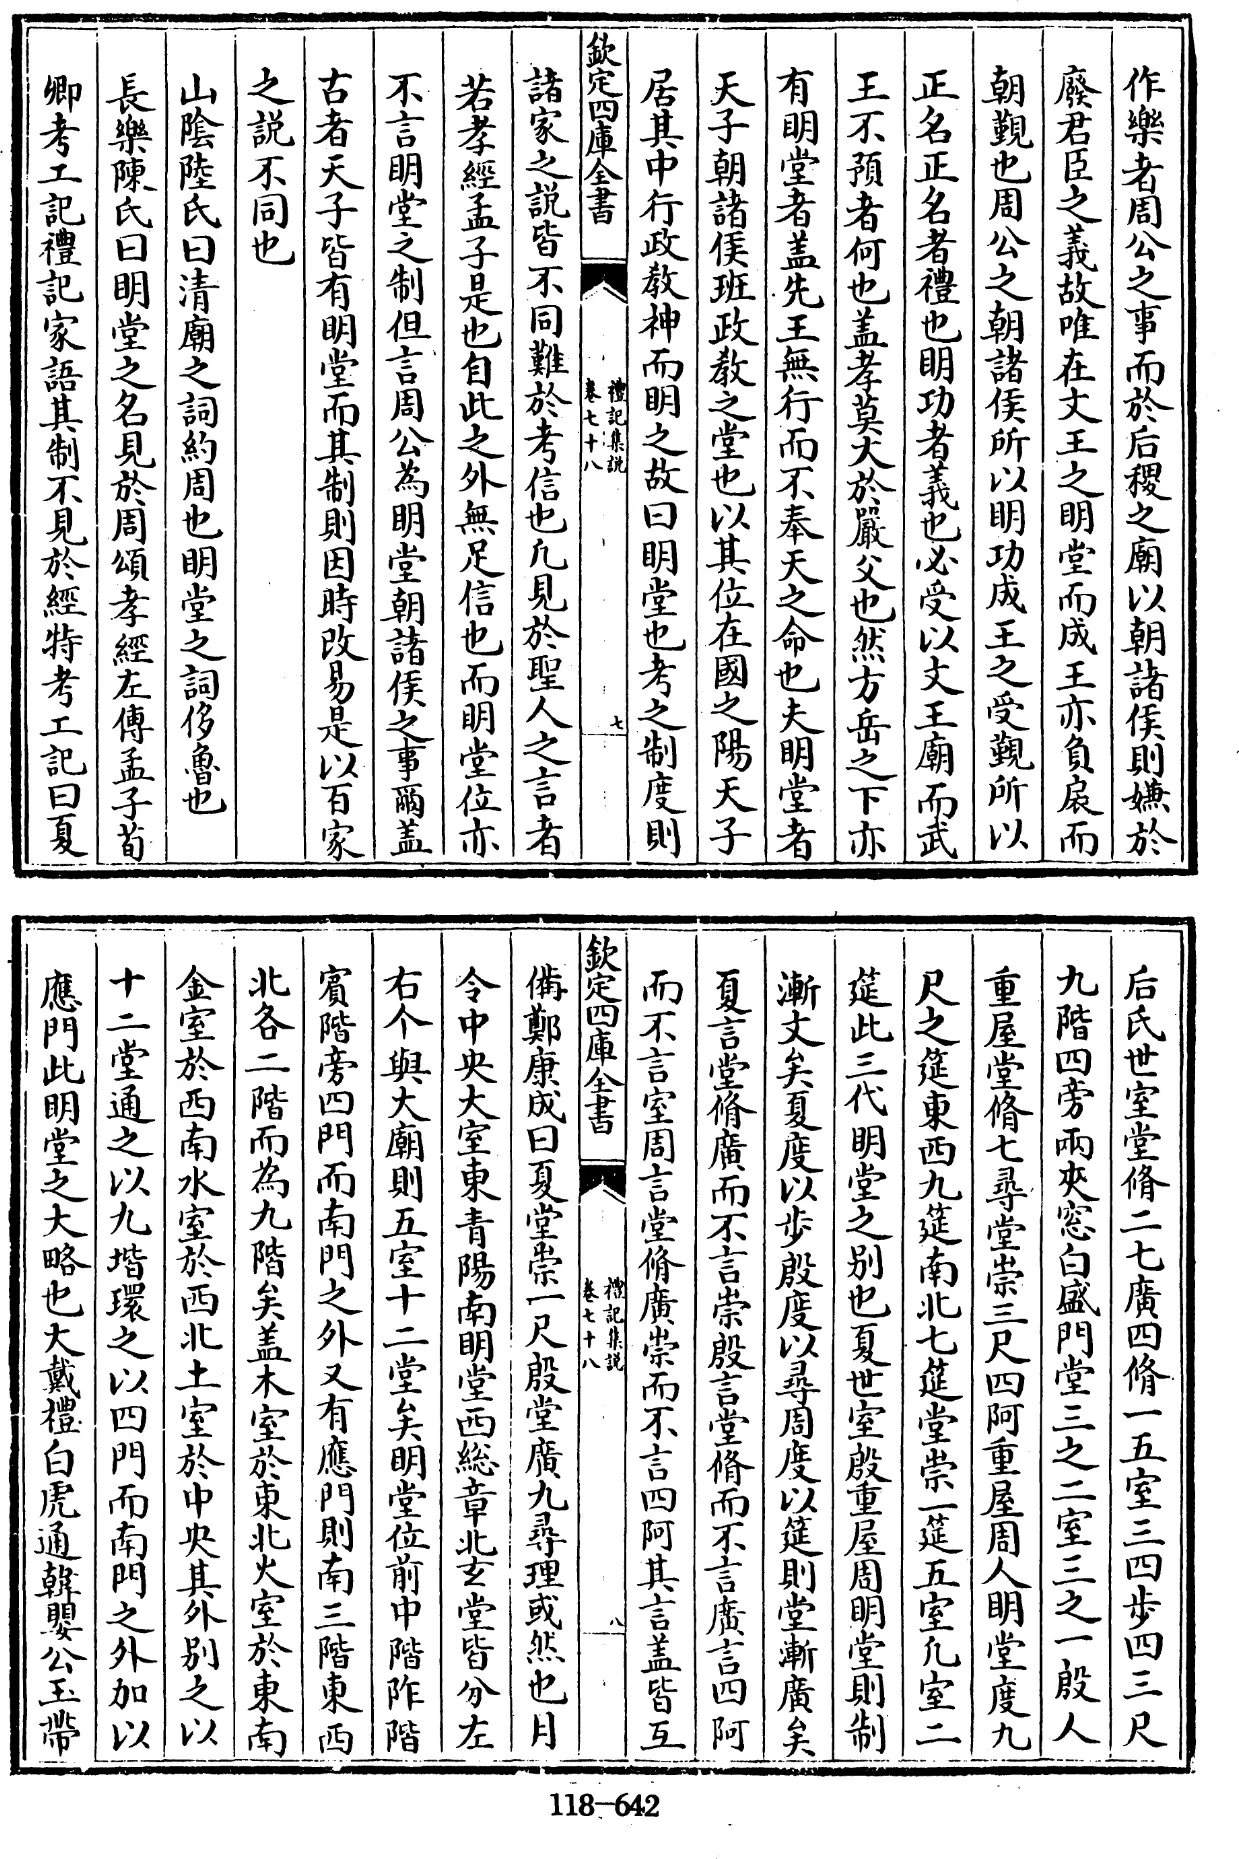 作樂者周公之事而於后稷之廟以朝諸侯則嫌於
廢君臣之義故唯在文王之明堂而成王亦負扆而
朝覲也周公之朝諸侯所以明功成王之受覲所以
正名正名者禮也明功者義也必受以文王廟而武
王不預者何也蓋孝莫大於嚴父也然方岳之下亦
有明堂者蓋先王無行而不奉天之命也夫明堂者
天子朝諸侯班政教之堂也以其位在國之陽天子
居其中行政教神而明之故曰明堂也考之制度則
欽定四庫全書
禮記集說
卷七十八
七
諸家之說皆不同難於考信也凡見於聖人之言者
若孝經孟子是也自此之外無足信也而明堂位亦
不言明堂之制但言周公為明堂朝諸侯之事爾蓋
古者天子皆有明堂而其制則因時改易是以百家
之說不同也
山陰陸氏曰清廟之詞約周也明堂之詞侈魯也
長樂陳氏曰明堂之名見於周頌孝經左傳孟子荀
卿考工記禮記家語其制不見於經特考工記曰夏
后氏世室堂脩二七廣四脩一五室三四步四三尺
九階四旁兩夾窓白盛門堂三之二室三之一殷人
重屋堂脩七尋堂崇三尺四阿重屋周人明堂度九
尺之筵東西九筵南北七筵堂崇一筵五室凡室二
筵此三代明堂之别也夏世室殷重屋周明堂則制
漸文矣夏度以步殷度以尋周度以筵則堂漸廣矣
夏言堂脩廣而不言崇殷言堂脩而不言廣言四阿
而不言室周言堂脩廣崇而不言四阿其言蓋皆互
欽定四庫全書
禮記集說
卷七十八
八
備鄭康成曰夏堂崇一尺殷堂廣九尋理或然也月
令中央大室東青陽南明堂西總章北玄堂皆分左
右个與大廟則五室十二堂矣明堂位前中階阼階
賓階旁四門而南門之外又有應門則南三階東西
北各二階而為九階矣蓋木室於東北火室於東南
金室於西南水室於西北土室於中央其外别之以
十二堂通之以九堦環之以四門而南門之外加以
應門此明堂之大略也大戴禮白虎通韓嬰公玉帶
118-642